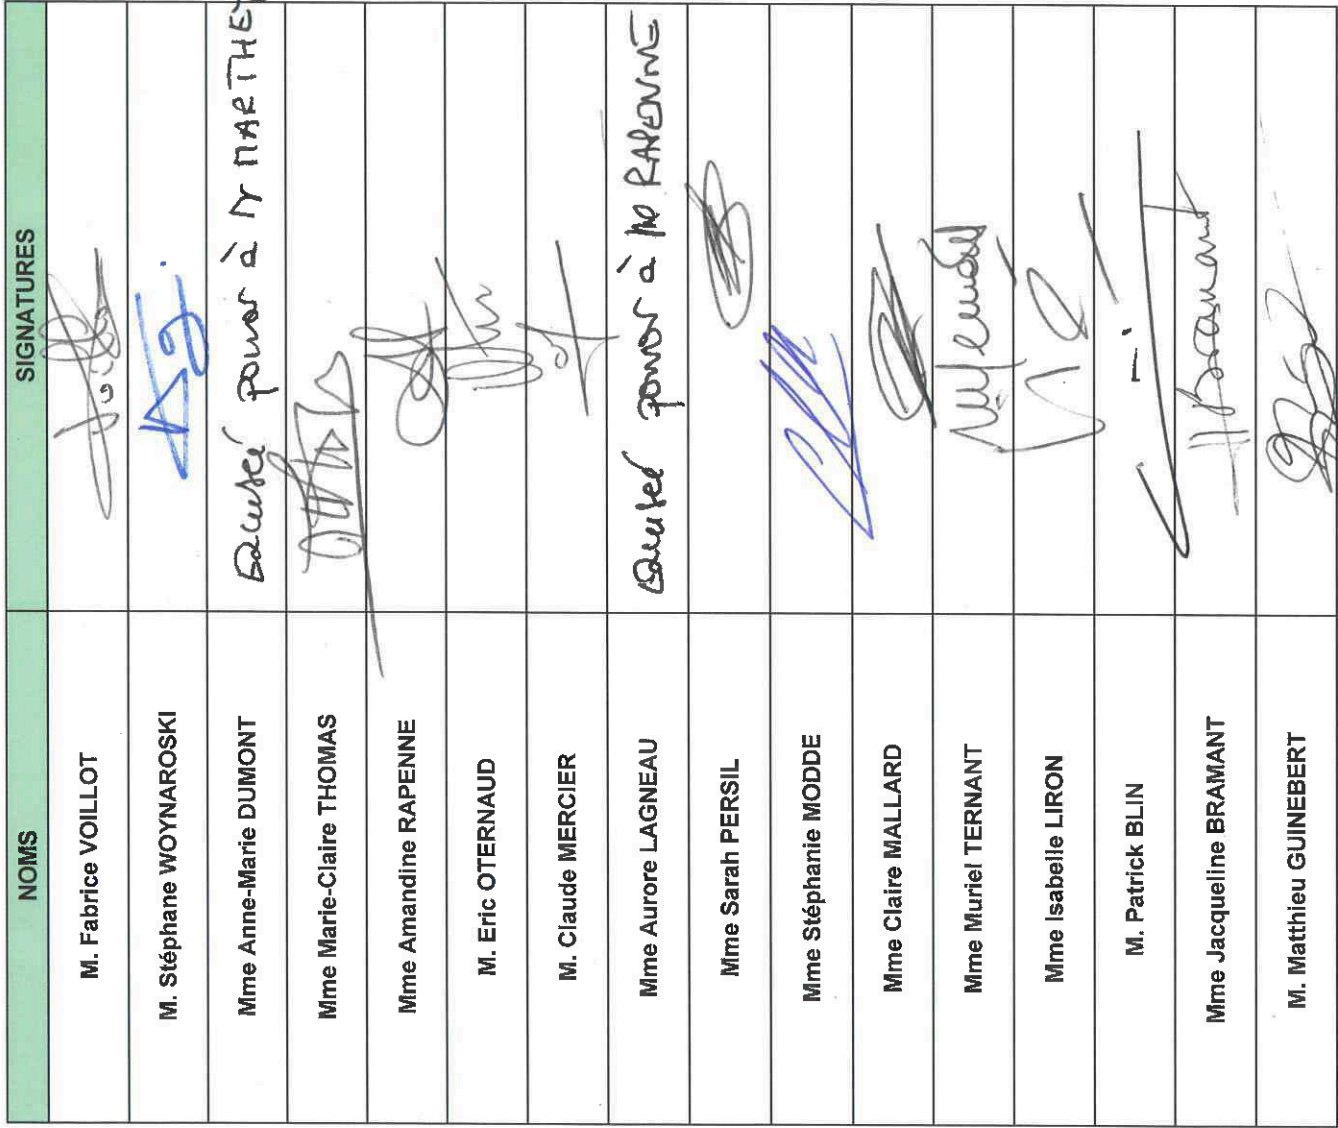 NOMS SIGNATURES
M. Fabrice VOILLOT
M. Stéphane WOYNAROSKI
Mme Anne-Marie DUMONT Excusée pouvoir à Mr MARTHEY
Mme Marie-Claire THOMAS
Mme Amandine RAPENNE
M. Eric OTERNAUD
M. Claude MERCIER
Mme Aurore LAGNEAU Excusée pouvoir à Me RAPENNE
Mme Sarah PERSIL
Mme Stéphanie MODDE
Mme Claire MALLARD
Mme Muriel TERNANT
Mme Isabelle LIRON
M. Patrick BLIN
Mme Jacqueline BRAMANT J Bramant
M. Matthieu GUINEBERT